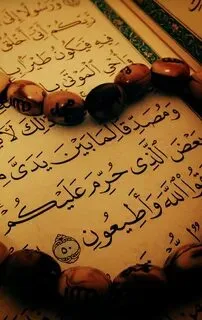 وَرَسُولًا إِلَىٰ
رَبِّكُمْ أَنِّي أَخْلُقُ
فِيهِ فَيَكُونُ طَيْرًا بِـ
حْيِ الْمَوْتَىٰ بِـ
ذَٰلِكَ لَآ
وَمُصَدِّقًا لِّمَا بَيْنَ يَدَيَّ مِ
بَعْضَ الَّذِي حُرِّمَ عَلَيْكُمْ
قُوا اللَّهَ وَأَطِيعُونِ ٥٠